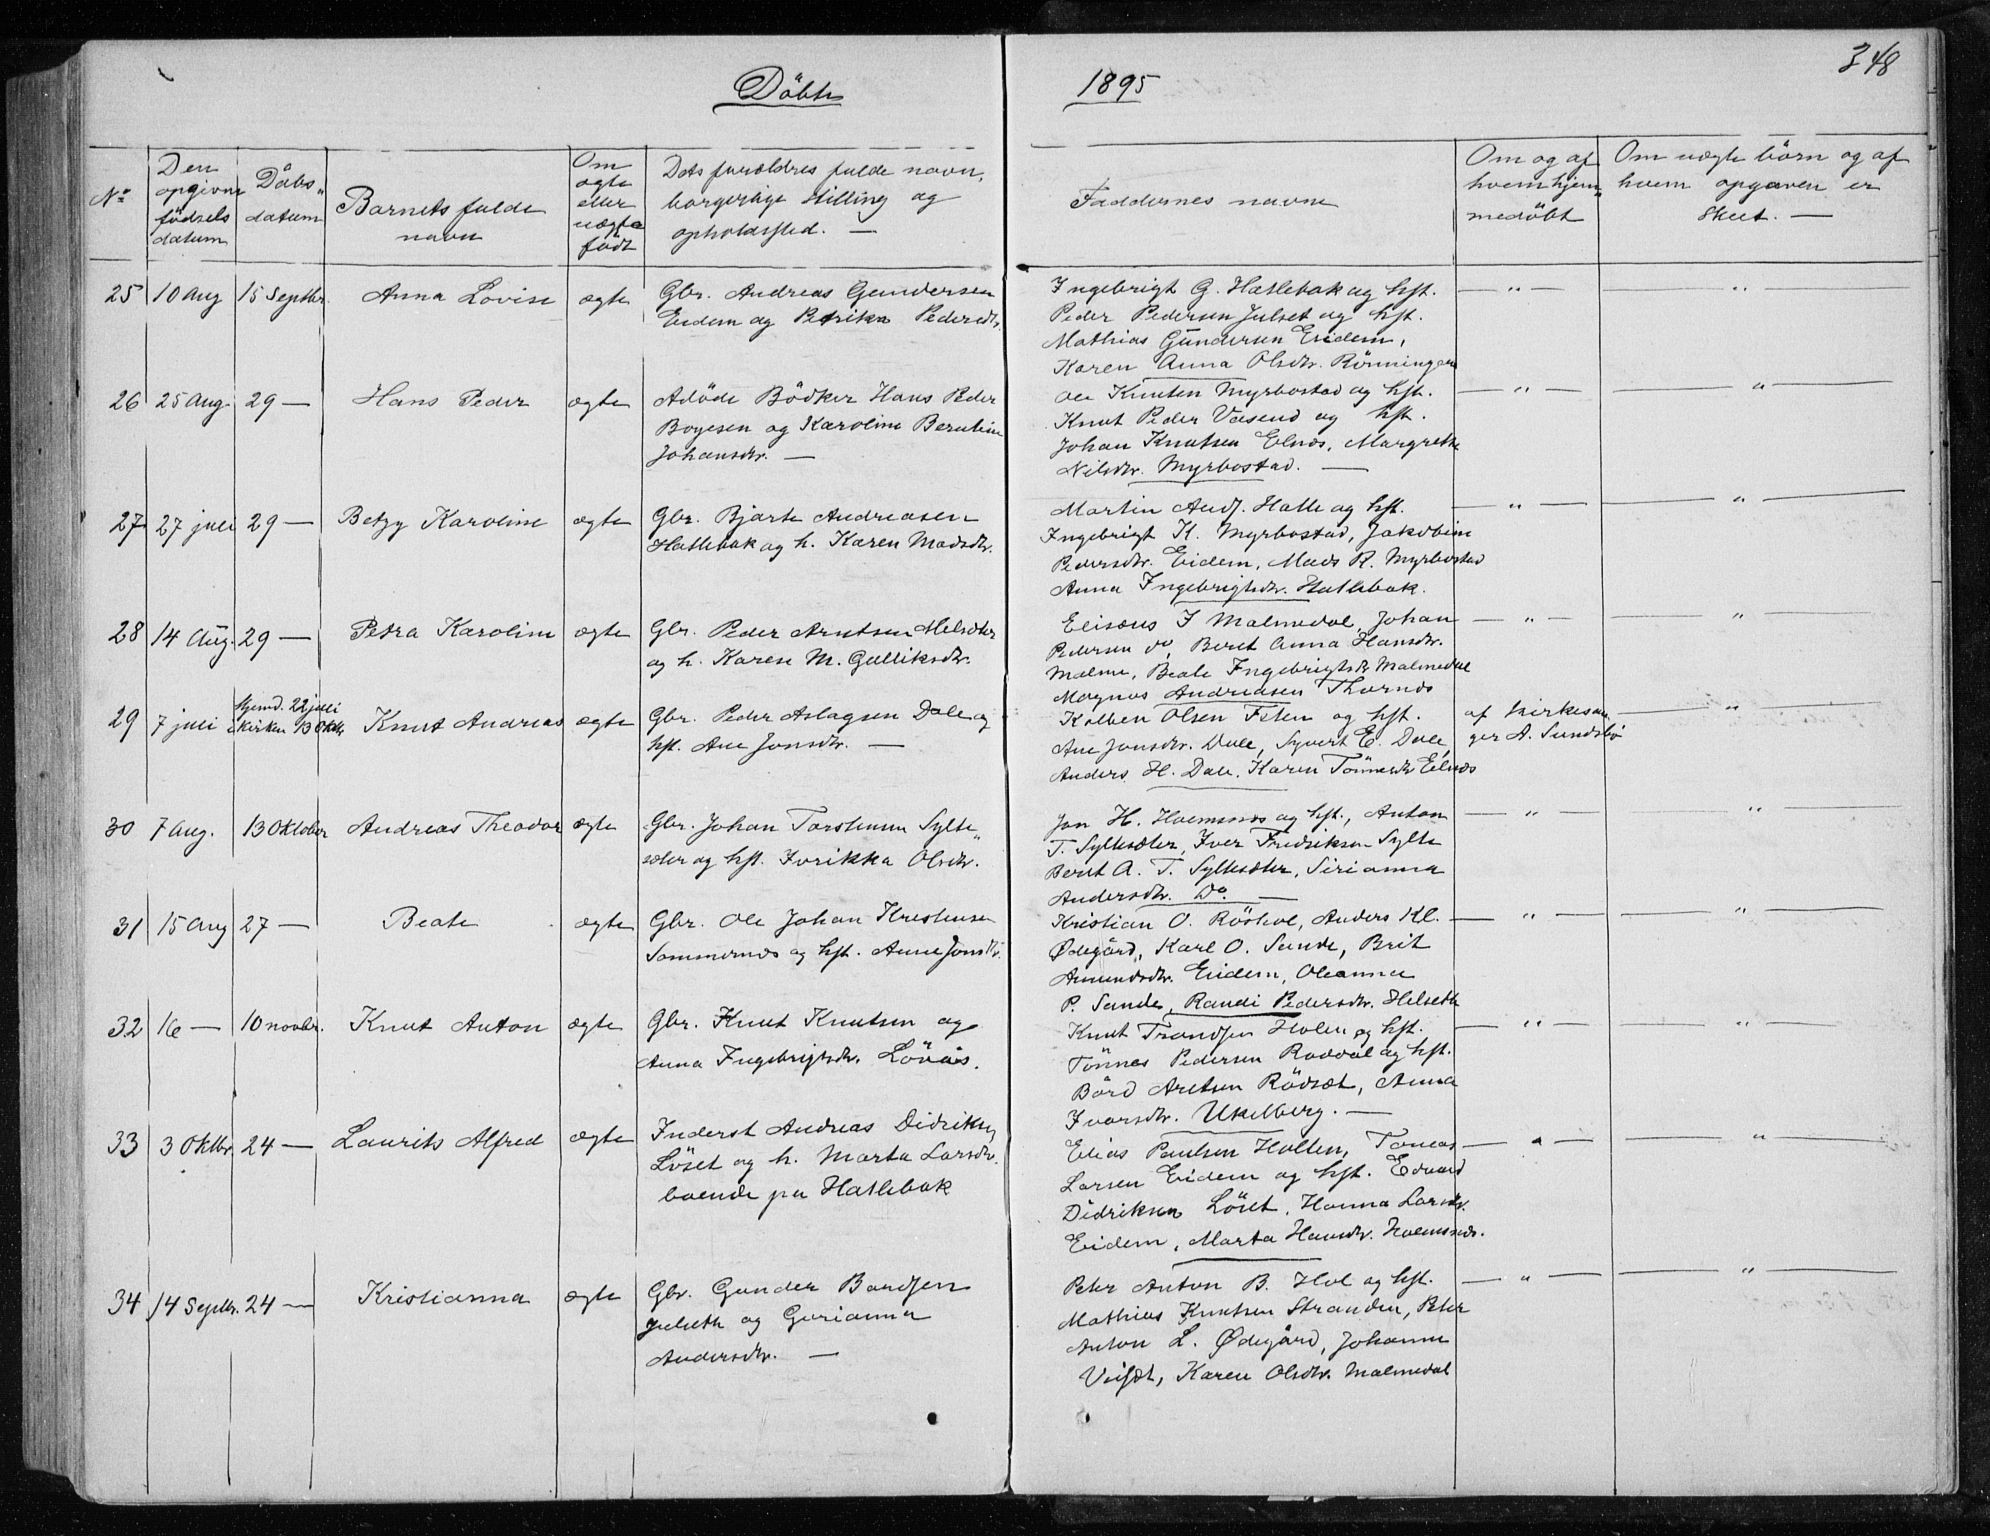 348
Döbte 1895
No
Den opgivne födsels datum
Dåbs datum
Barnets fulde navn
Om ægte eller uægte födt
Dets forældres fulde navn, borgerlige stilling og opholdssted. —
Faddernes navne
Om og af hvem hjemmedöbt
Om uægte börn og af hvem opgaven er skeet. —
25 10 Aug 15 Septbr. Anna Lovise ægte Gbr. Andreas Gundersen
Eidem og Petrika Pedersdtr.
Ingebrigt G. Hatlebak og hst. — " — — " —
Peder Pedersen Julset og hst.
Mathias Gundersen Eidem,
Karen Anna Olsdtr. Rönningen
26 25 Aug. 29 — Hans Peder ægte Adöde Bödker Hans Peder
Boyesen og Karoline Berntine
Johansdtr. —
Ole Knutsen Myrbostad og hst. — " — — " —
Knut Peder Vasend og hst.
Johan Knutsen Elnæs, Margrethe
Nilsdtr. Myrbostad. —
27 27 juli 29 — Betzy Karoline ægte Gbr. Bjarte Andreasen
Hatlebak og h. Karen Madsdtr.
Martin Andr. Hatle og hst. — " — — " —
Ingebrigt K. Myrbostad, Jakobine
Pedersdtr. Eidem, Mads R. Myrbostad
Anna Ingebrigtsdtr. Hatlebak.
28 14 Aug. 29 — Petra Karoline ægte Gbr. Peder Arntsen Melsæter
og h. Karen M. Gulliksdtr.
Elisæus I Malmedal, Johan — " — — " —
Pedersen do, Beret Anna Hansdtr.
Malme, Beate Ingebrigtsdtr Malmedal
Magnus Andreasen Thornæs
29 7 juli Hjemd. 22 juli i kirken 13 Oktbr Knut Andreas ægte Gbr. Peder Aslagsen Dale og
hst. Ane Jonsdtr. —
Kolben Olsen Isten og hst. af kirkesanger A. Sundsbö — " —
Ane Jonsdtr. Dale, Syvert E. Dale,
Anders H. Dale, Karen Tönnesdtr Elnæs
30 7 Aug. 13 Oktober Andreas Theodor ægte Gbr. Johan Torstensen Sylte-
sæter og hst. Ivrikka Olsdtr.
Jon H. Holmsnæs og hst., Anton — " — — " —
T. Syltesæter, Iver Fredriksen Sylte
Beret A. T. Syltesæter, Sirianna
Andersdtr. Do. —
31 15 Aug 27 — Beate ægte Gbr. Ole Johan Kristensen
Sommernæs og hst. Anne Jonsdtr.
Kristian O. Röshol, Anders Kl. — " — — " —
Ødegård, Karl O. Sunde, Brit
Amundsdtr. Eidem, Oleanna
P. Sunde, Randi Pedersdtr. Helseth
32 16 — 10 novbr. Knut Anton ægte Gbr. Knut Knutsen og
Anna Ingebrigtsdtr. Löväs.
Knut Trondsen Holen og hst. — " — — " —
Tönnes Pedersen Rødal og hst.
Bård Aretsen Rödsæt, Anna
Ivarsdtr. Ukelberg. —
33 3 Oktbr. 24 — Laurits Alfred ægte Inderst Andreas Didriksen
Löset og h. Marta Larsdtr.
boende på Hatlebak
Elias Paulsen Holten, Tomas — " — — " —
Larsen Eidem og hst. Edvard
Didriksen Löset, Hanna Larsdtr.
Eidem, Marta Hansdtr. Holmsnæs.
34 14 Septbr. 24 — Kristianna ægte Gbr. Gunder Bardsen
Julseth og Gurianna
Andersdtr. —
Peter Anton B. Hol og hst. — " — — " —
Mathias Knutsen Stranden, Peter
Anton L. Ødegård, Johanne
Veiset, Karen Olsdtr. Malmedal